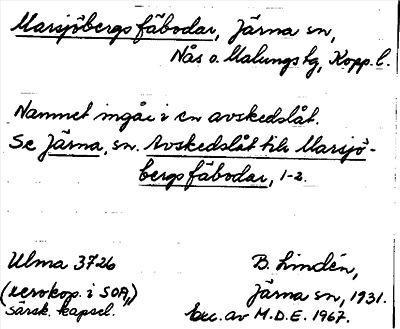 Marsjöbergs fäbodar, Järna sn,
Nås o. Malungs tg, Kopp. l.
Namnet ingår i en avskedslåt.
Se Järna, sn. Avskedslåt till Marsjö-
bergs fäbodar, 1-2.
Ulma 3726
(xerokop. i SOA,)
särsk. kapsel.
B. Lindén,
Järna sn, 1931.
Exc. av M.D.E. 1967.